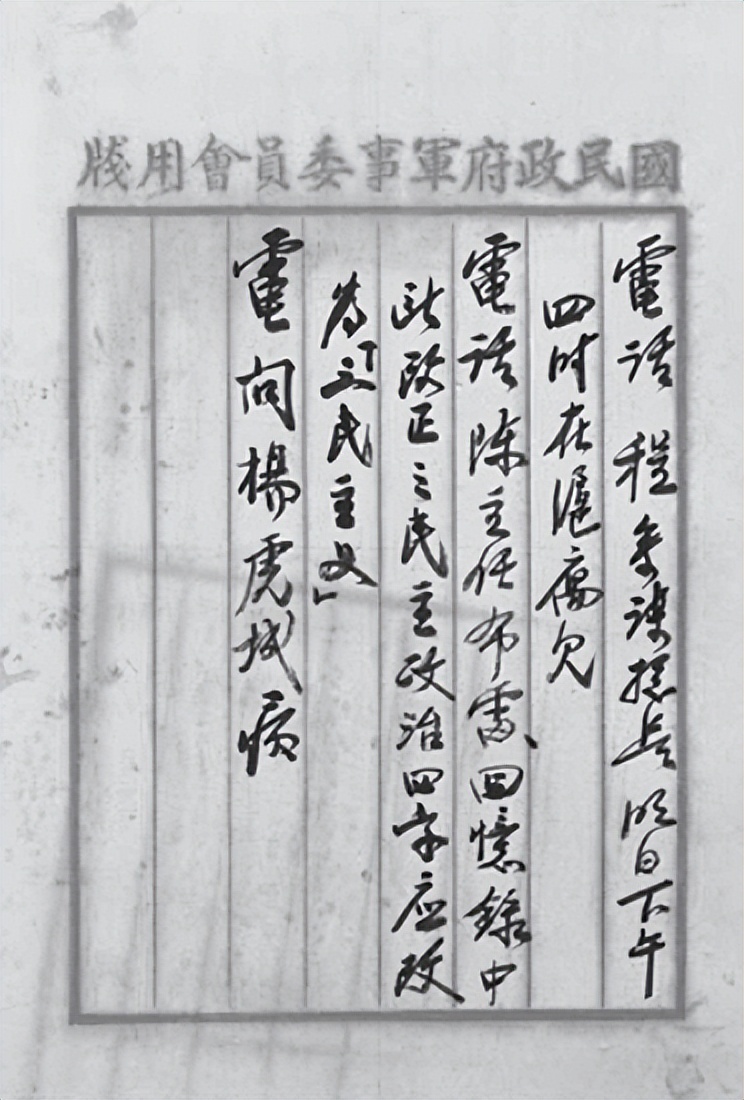 國民政府軍事委員會用牋
電話 程參謀總長明日下午
四时在滬寓见
電話 陳主任布雷、回憶錄中
改正之民主政治四字应改
为「三民主义」
電向楊虎城病